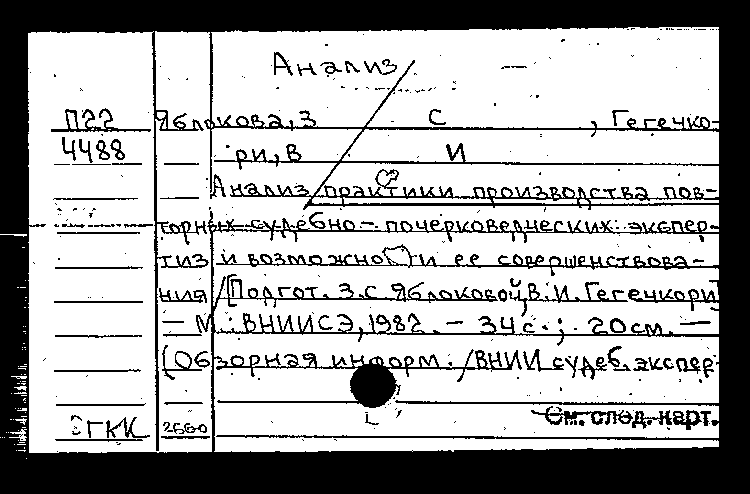 Анализ
П22 Яблокова, З С , Гегечко-
4488 ри, В И
Анализ практики производства пов-
торных судебно-почерковедческих экспер-
тиз и возможности ее совершенствова-
ния / [Подгот. З.С Яблоковой, В.И. Гегечкори]
— М. : ВНИИСЭ, 1982. — 34 с. ; 20 см. —
(Обзорная информ. / ВНИИ судеб. экспер-
См. след. карт.
ГКК 2660